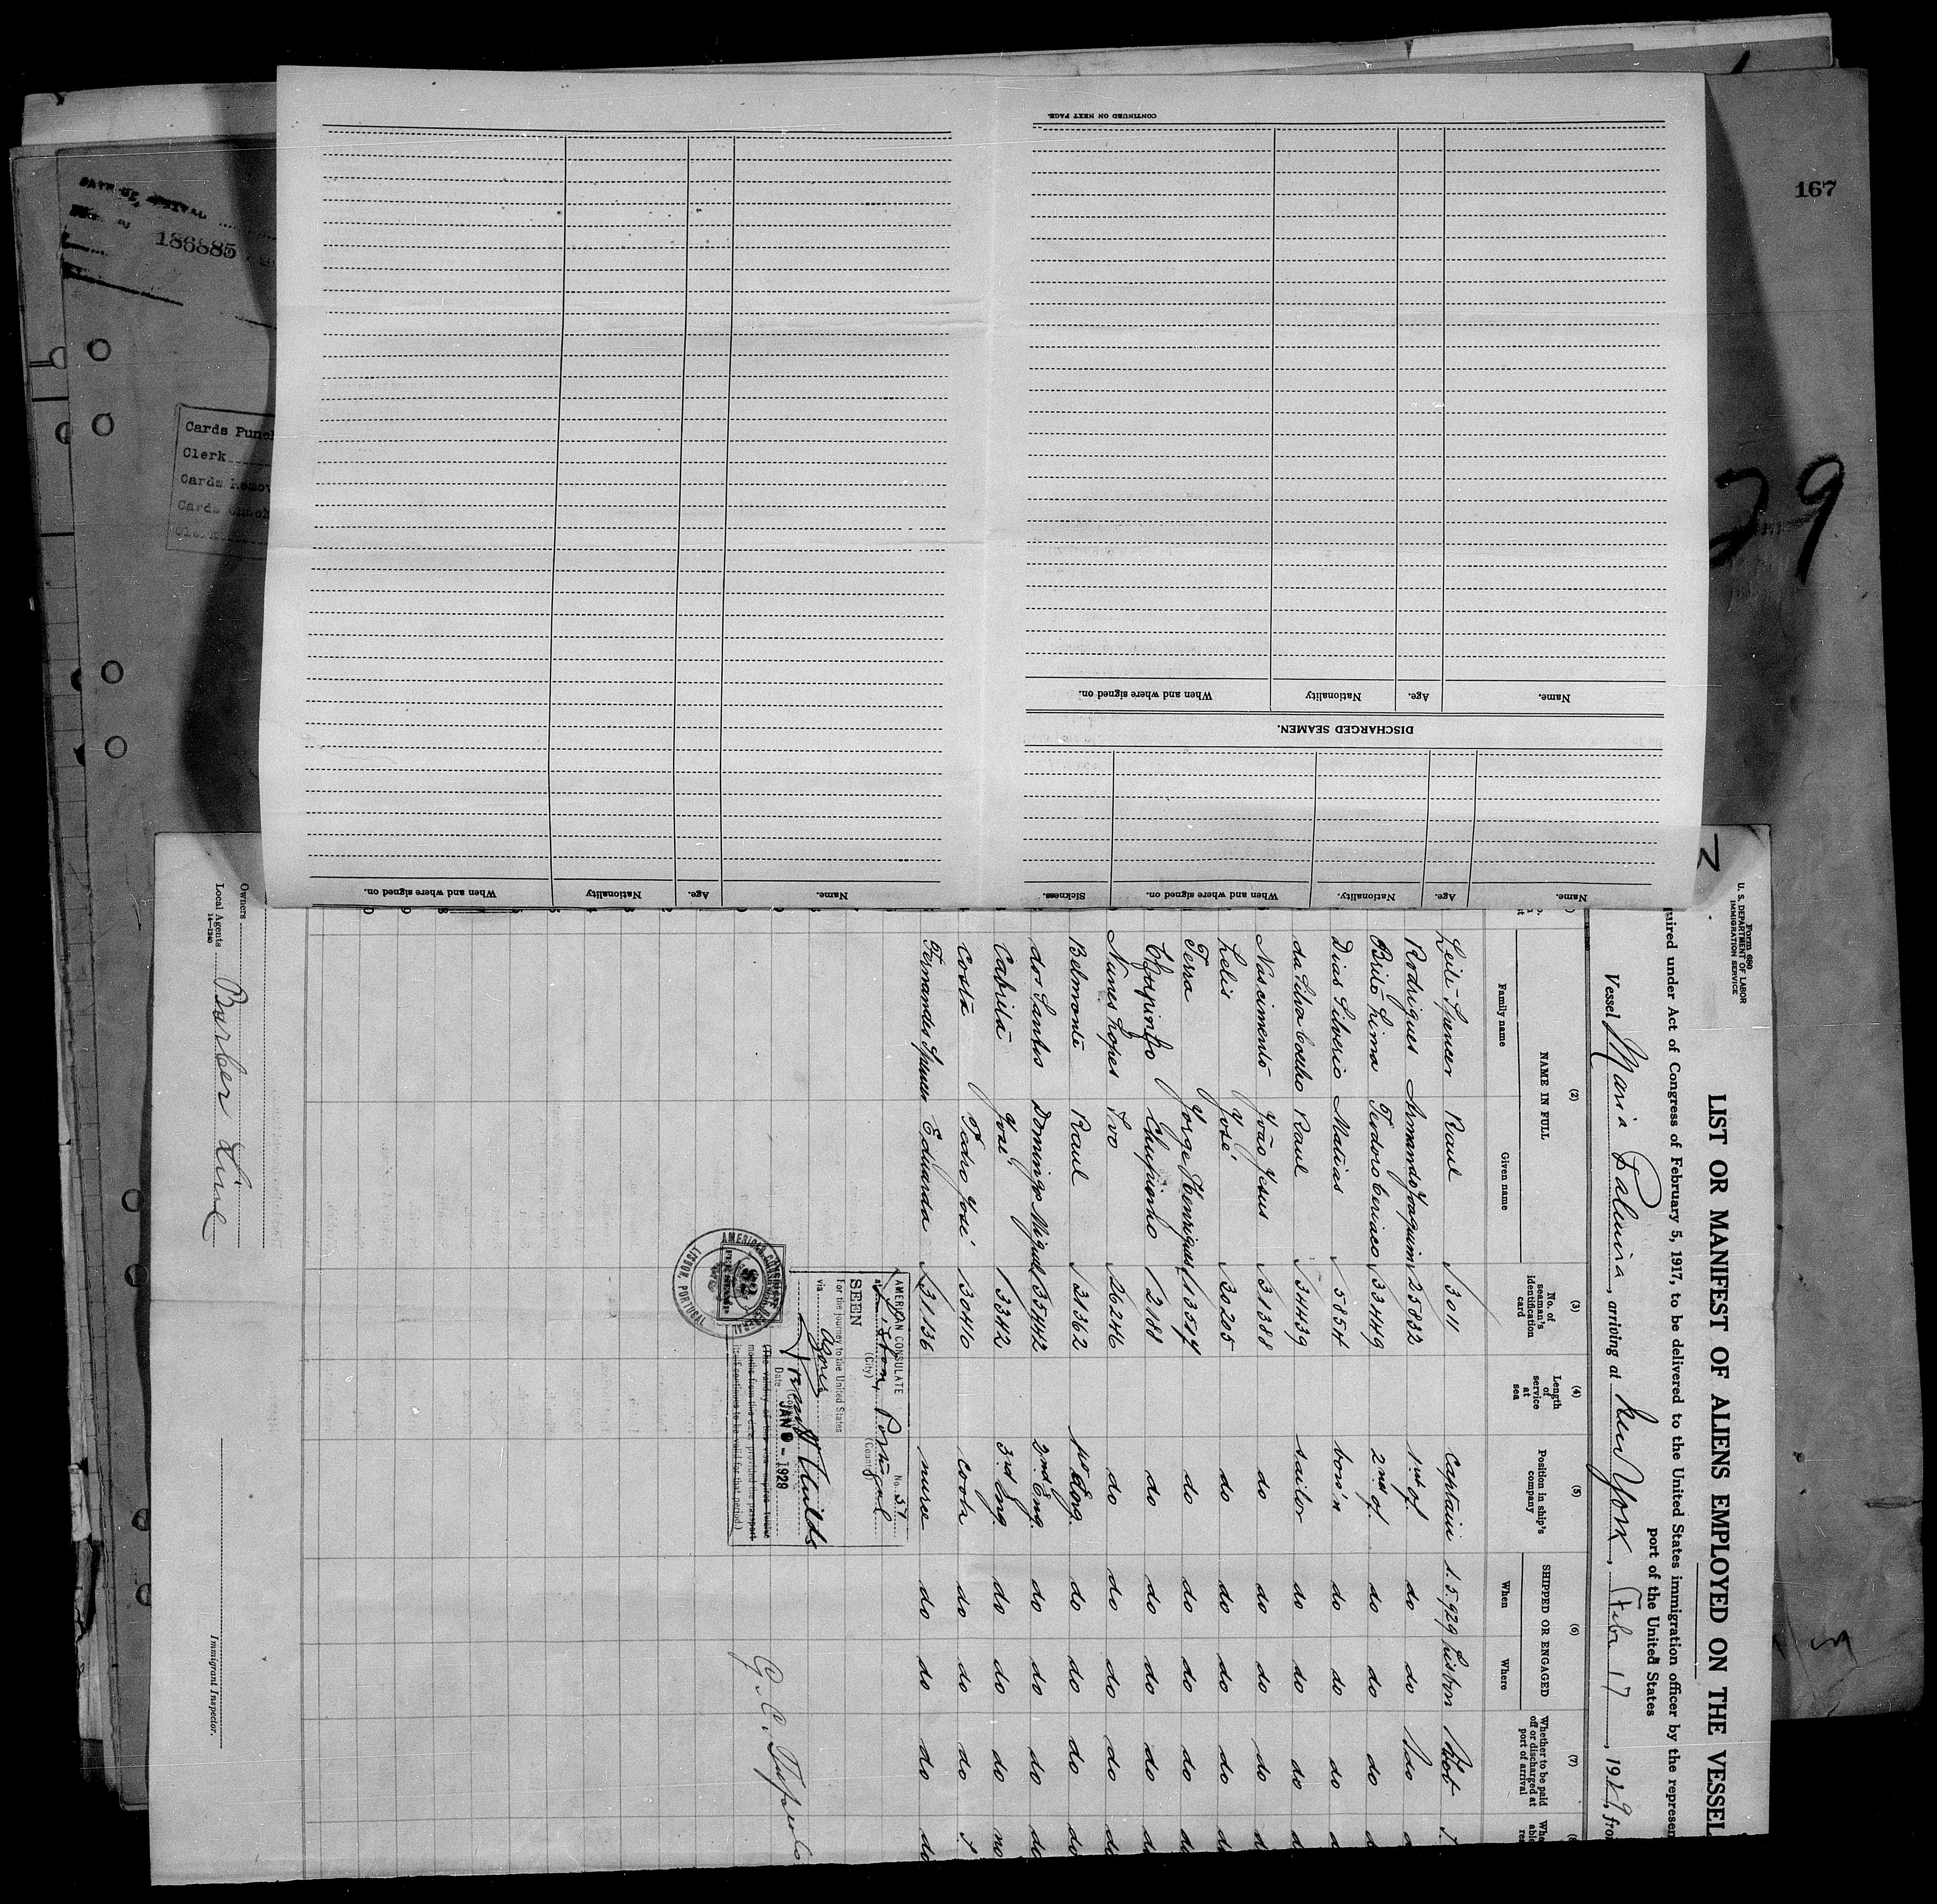 167
29
186885
Cards Punch
Clerk
Cards Remov
Cards Check
Clerk
CONTINUED ON NEXT PAGE.
Name. Age. Nationality When and where signed on.
DISCHARGED SEAMEN.
Name. Age. Nationality. When and where signed on. Sickness.
Name. Age. Nationality When and where signed on.
Form 680
U. S. DEPARTMENT OF LABOR
IMMIGRATION SERVICE
LIST OR MANIFEST OF ALIENS EMPLOYED ON THE VESSEL
quired under Act of Congress of February 5, 1917, to be delivered to the United States immigration officer by the represen
port of the United States
Vessel Maria Palmira, arriving at New York, Feb. 17, 1929, fro
(2) (3) (4) (5) (6) (7)
NAME IN FULL
Family name Given name
No. of seaman's identification card
Length of service at sea
Position in ship's company
SHIPPED OR ENGAGED
When Where
Whether to be paid off or discharged at port of arrival
Leite Spencer Raul 3011 Captain 1.5.929 Lisbon Not
Rodrigues Armando Joaquim 25832 1st of. do do
Brito Lima Teodoro Ceriaco 33449 2nd of. do do do
Dias Silverio Matias 5854 bos'n do do do
da Silva Coelho Raul 34439 sailor do do do
Nascimento João Jesus 31388 do do do do
Lelis José 30205 do do do do
Terra Jorge Henriques 13514 do do do do
Chupinho 2188 do do do do
Nunes Lopes Ivo 26246 do do do do
Belmonte Raul 31362 Eng. do do do
dos Santos Domingo Miguel 35442 2nd Eng. do do do
Cabrita José 3342 3rd Eng. do do do no
Costa Pedro José 30410 cook do do do
Fernandes Spencer Eduarda 31136 nurse do do do do
AMERICAN CONSULATE No. 51
at Lisbon, Portugal
(City) (Country)
SEEN
For the journey to the United States
via Azores
Date JAN 9 - 1929
(The validity of this visa expires twelve
months from this date, provided the passport
itself continues to be valid for that period.)
AMERICAN CONSULATE GENERAL
LISBON, PORTUGAL
Owners
Local Agents Barber Line
14—1240
Immigrant Inspector.